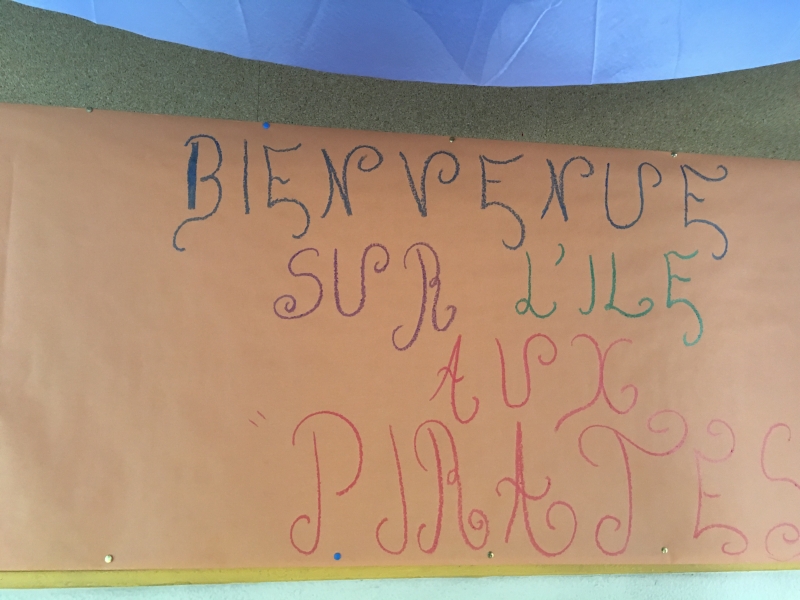 BIENVENUE
SUR L'ILE
AUX
"PIRATES